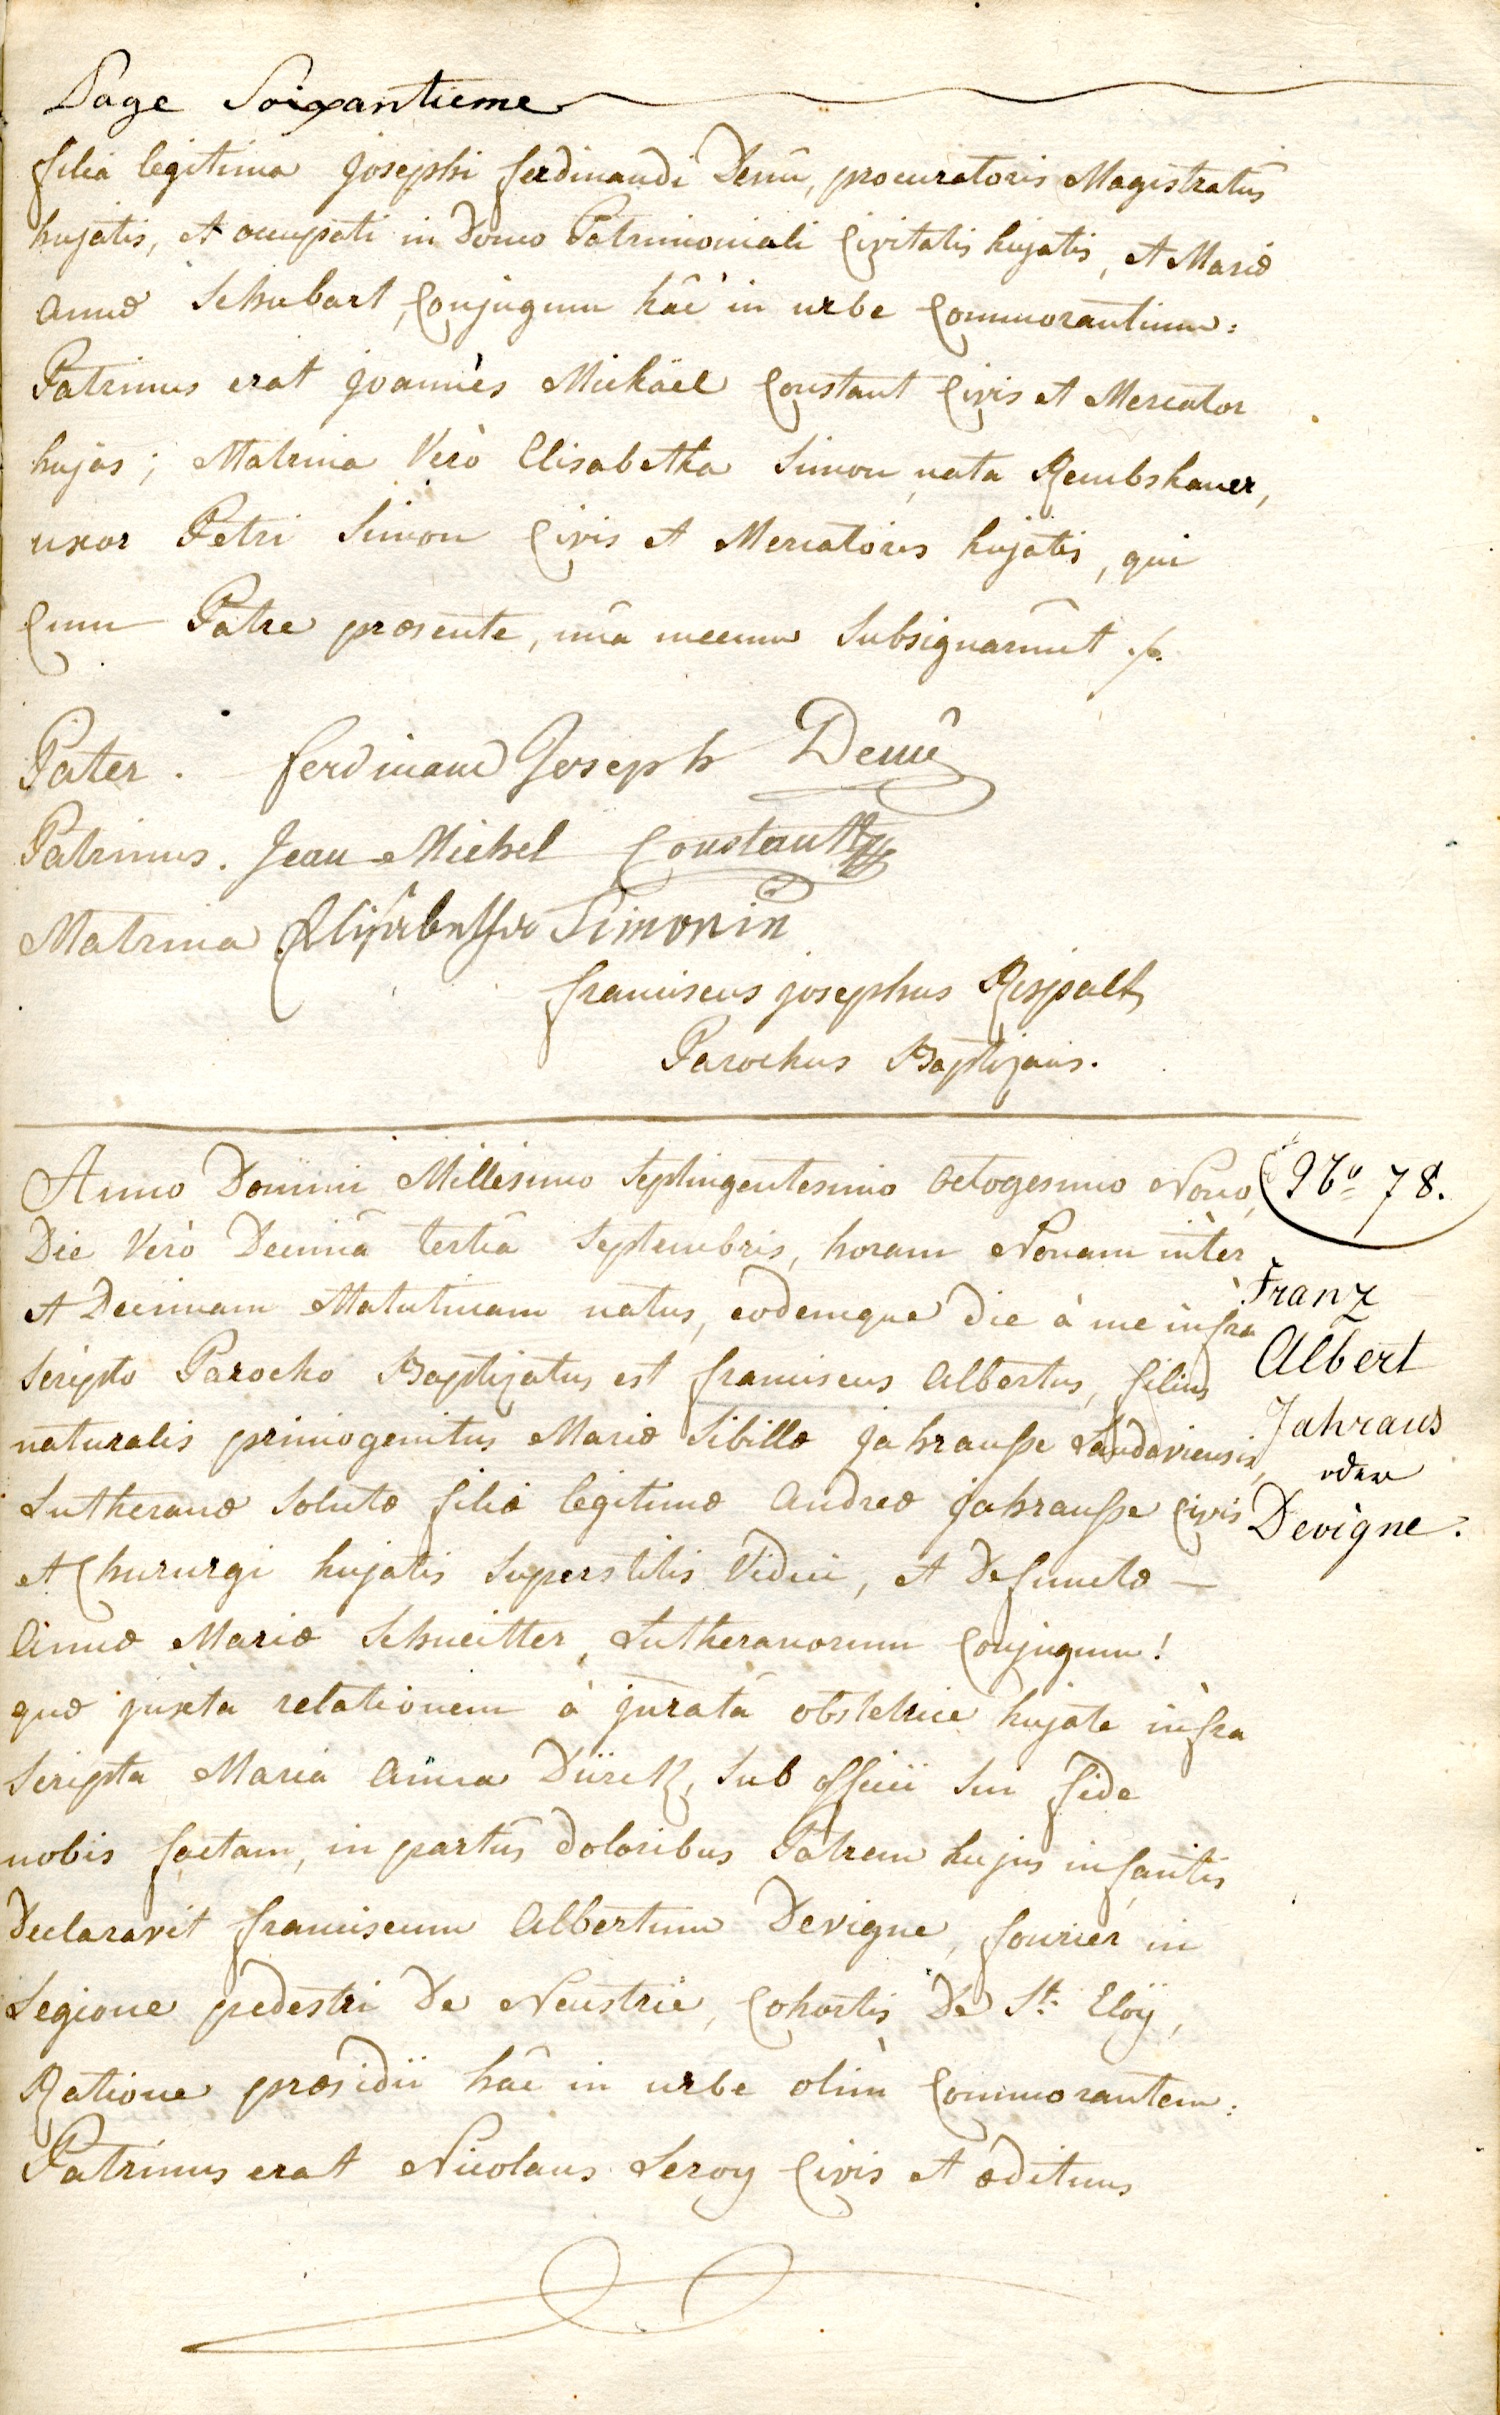 Page Soixantieme
filia legitima Josephi ferdinandi Demû, procuratoris Magistratûs
hujatis, et occupati in Domo Patrimoniali Civitatis hujatis, et Mariæ
annæ Schubart, Conjugum hâc in urbe Commorantium:
Patrinus erat Joannès Michäel Constant Civis et Mercator
hujas; Matrina Verò Elisabetha Simon nata Rembshauer,
uxor Petri Simon Civis et Mercatoris hujatis, qui
Cum Patre præsente, unâ mecum Subsignarûnt ./.
Pater. ferdinand Joseph Demû
Patrinus. Jean Michel Constant
Matrina Elisabetha Simonin
franciscus josephus Rispalt
Parochus Baptizans.
Anno Domini Millesimo Septingentesimo octogesimo Nono,
No 78.
Die Verò Decimâ tertiâ Septembris, horam Nonam intèr
et Decimam Matutinam natus, eodemque die à me infrà
Franz
Scripto Parocho Baptizatus est franciscus Albertus, filius
Albert
naturalis primogenitus Mariæ Sibillæ Jahrausse Landaviensis,
Jahraus
oder
Lutheranæ Solutæ filiæ legitimæ Andreæ Jahrausse Civis
Devigne.
et Chururgi hujatis Superstitis Vidui, et Defunctæ –
Annæ Mariæ Schneitter, Lutheranorum Conjugum!
quæ juxta relationem à juratâ obstetrice hujate infrà
Scripta Maria Anna Dürck, Sub officii Sui fide
nobis factam, in partûs doloribus Patrem hujus infantis
Declaravit franciscum Albertum Devigne, fourier in
Legione pedestri De Neustrie, Cohortis De St: Eloÿ,
Ratione præsidii hâc in urbe olim Commorantem:
Patrinus erat Nicolaus Leroy Civis et ædituus